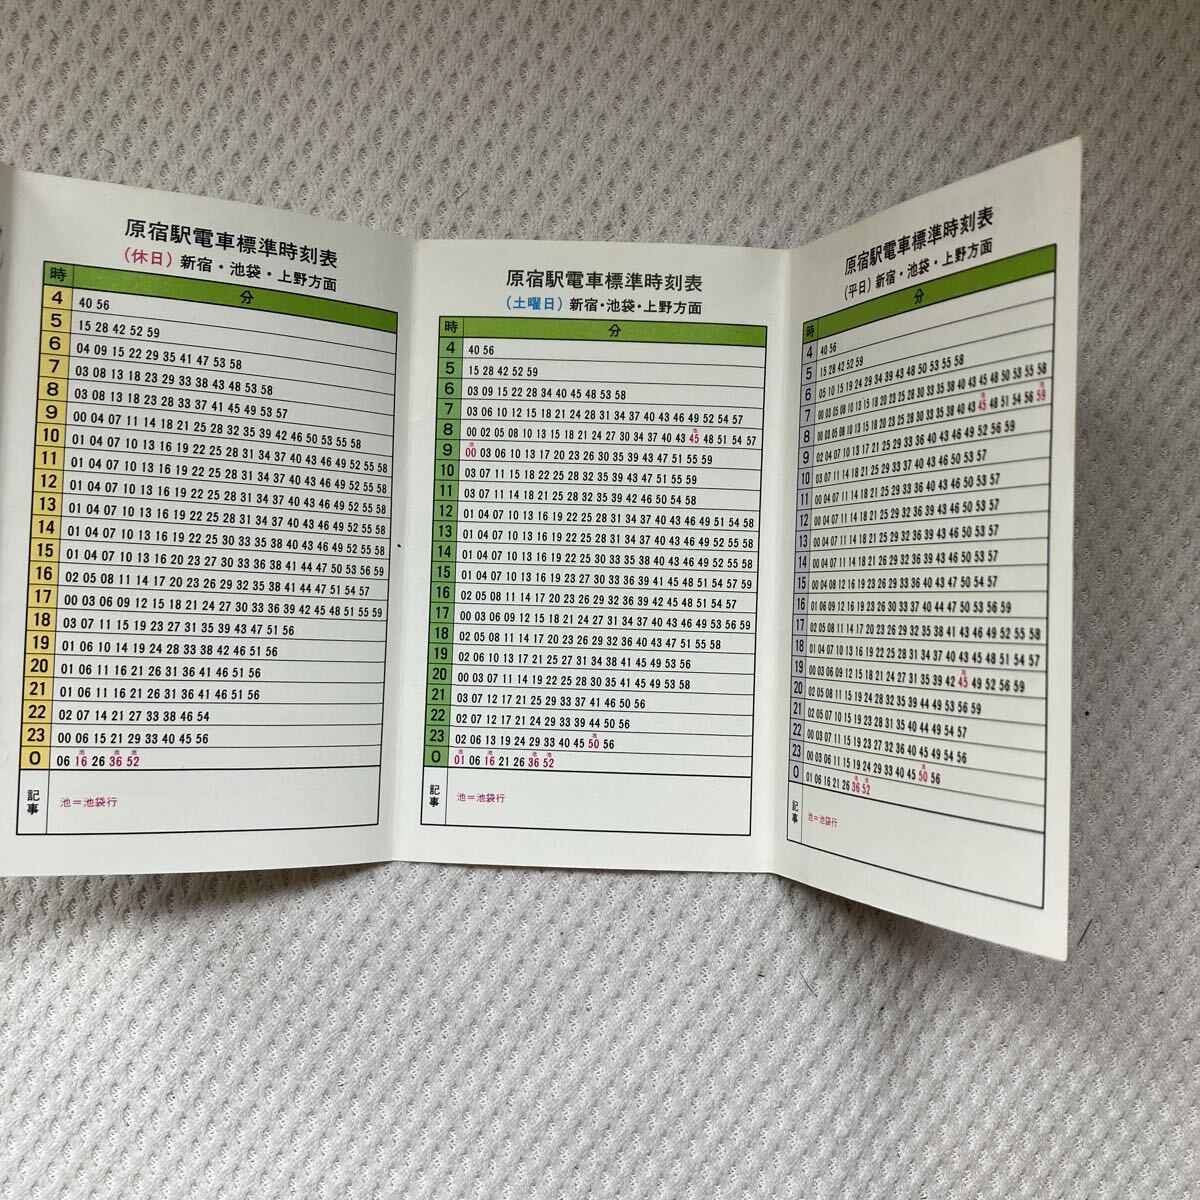 原宿駅電車標準時刻表
(休日) 新宿・池袋・上野方面
時 分
4 40 56
5 15 28 42 52 59
6 04 09 15 22 29 35 41 47 53 58
7 03 08 13 18 23 29 33 38 43 48 53 58
8 03 08 13 18 23 28 33 37 41 45 49 53 57
9 00 04 07 11 14 18 21 25 28 32 35 39 42 46 50 53 55 58
10 01 04 07 10 13 16 19 22 25 28 31 34 37 40 43 46 49 52 55 58
11 01 04 07 10 13 16 19 22 25 28 31 34 37 40 43 46 49 52 55 58
12 01 04 07 10 13 16 19 22 25 28 31 34 37 40 43 46 49 52 55 58
13 01 04 07 10 13 16 19 22 25 28 31 34 37 40 43 46 49 52 55 58
14 01 04 07 10 13 16 19 22 25 30 33 35 38 40 43 46 49 52 55 58
15 01 04 07 10 13 16 20 23 27 30 33 36 38 41 44 47 50 53 56 59
16 02 05 08 11 14 17 20 23 26 29 32 35 38 41 44 47 51 54 57
17 00 03 06 09 12 15 18 21 24 27 30 33 36 39 42 45 48 51 55 59
18 03 07 11 15 19 23 27 31 35 39 43 47 51 56
19 01 06 10 14 19 24 28 33 38 42 46 51 56
20 01 06 11 16 21 26 31 36 41 46 51 56
21 01 06 11 16 21 26 31 36 41 46 51 56
22 02 07 14 21 27 33 38 46 54
23 00 06 15 21 29 33 40 45 56
池 池 池
0 06 16 26 36 52
記事 池=池袋行
原宿駅電車標準時刻表
(土曜日) 新宿・池袋・上野方面
時 分
4 40 56
5 15 28 42 52 59
6 03 09 15 22 28 34 40 45 48 53 58
7 03 06 10 12 15 18 21 24 28 31 34 37 40 43 46 49 52 54 57
池
8 00 02 05 08 10 13 15 18 21 24 27 30 34 37 40 43 45 48 51 54 57
池
9 00 03 06 10 13 17 20 23 26 30 35 39 43 47 51 55 59
10 03 07 11 15 18 22 25 28 32 35 39 43 47 51 55 59
11 03 07 11 14 18 21 25 28 32 35 39 42 46 50 54 58
12 01 04 07 10 13 16 19 22 25 28 31 34 37 40 43 46 49 51 54 58
13 01 04 07 10 13 16 19 22 25 28 31 34 37 40 43 46 49 52 55 58
14 01 04 07 10 13 16 19 22 25 28 30 33 35 38 40 43 46 49 52 55 58
15 01 04 07 10 13 16 19 23 27 30 33 36 39 41 45 48 51 54 57 59
16 02 05 08 11 14 17 20 23 26 29 32 36 39 42 45 48 51 54 57
17 00 03 06 09 12 15 18 21 24 27 31 34 37 40 43 46 49 53 56 59
18 02 05 08 11 14 17 20 23 26 29 32 36 40 43 47 51 55 58
19 02 06 10 13 17 21 25 27 31 34 38 41 45 49 53 56
20 00 03 07 11 14 19 22 25 28 30 35 41 45 49 53 58
21 03 07 12 17 21 25 29 33 37 41 46 50 56
22 02 07 12 17 21 24 29 33 39 44 50 56
池
23 02 06 13 19 24 29 33 40 45 50 56
池 池 池 池
0 01 06 16 21 26 36 52
記事 池=池袋行
原宿駅電車標準時刻表
(平日) 新宿・池袋・上野方面
時 分
4 40 56
5 15 28 42 52 59
6 05 10 15 19 24 29 34 39 43 48 50 53 55 58
7 00 03 05 08 10 13 15 18 20 23 25 28 30 33 35 38 40 43 45 48 50 53 55 58
池 池
8 00 03 05 08 10 13 15 18 20 23 25 28 30 33 35 38 40 43 45 48 51 54 56 59
9 02 04 07 10 13 17 21 25 29 33 36 39 43 46 49 52 56 59
10 03 07 11 14 18 21 25 29 33 37 40 43 46 50 53 57
11 00 04 07 11 14 18 21 25 29 33 36 40 43 46 50 53 57
12 00 04 07 11 14 18 21 25 29 33 36 39 43 46 50 53 57
13 00 04 07 11 14 18 21 25 29 33 36 39 43 46 50 53 57
14 00 04 07 11 14 18 21 25 29 33 36 39 43 46 50 53 57
15 00 04 08 12 16 19 23 26 29 33 36 40 43 47 50 54 57
16 01 06 09 12 16 19 23 26 30 33 37 40 44 47 50 53 56 59
17 02 05 08 11 14 17 20 23 26 29 32 35 38 41 43 46 49 52 55 58
18 01 04 07 10 13 16 19 22 25 28 31 34 37 40 43 45 48 51 54 57
池
19 00 03 06 09 12 15 18 21 24 27 31 35 39 42 45 49 52 56 59
20 02 05 08 11 15 19 24 28 32 35 39 44 49 53 56 59
21 02 05 07 10 15 19 23 28 31 35 40 44 49 54 57
22 00 03 07 11 15 19 23 27 32 36 40 45 49 54 56
池
23 00 03 06 11 15 19 24 29 33 40 45 50 56
池 池
0 01 06 16 21 26 36 52
記事 池=池袋行